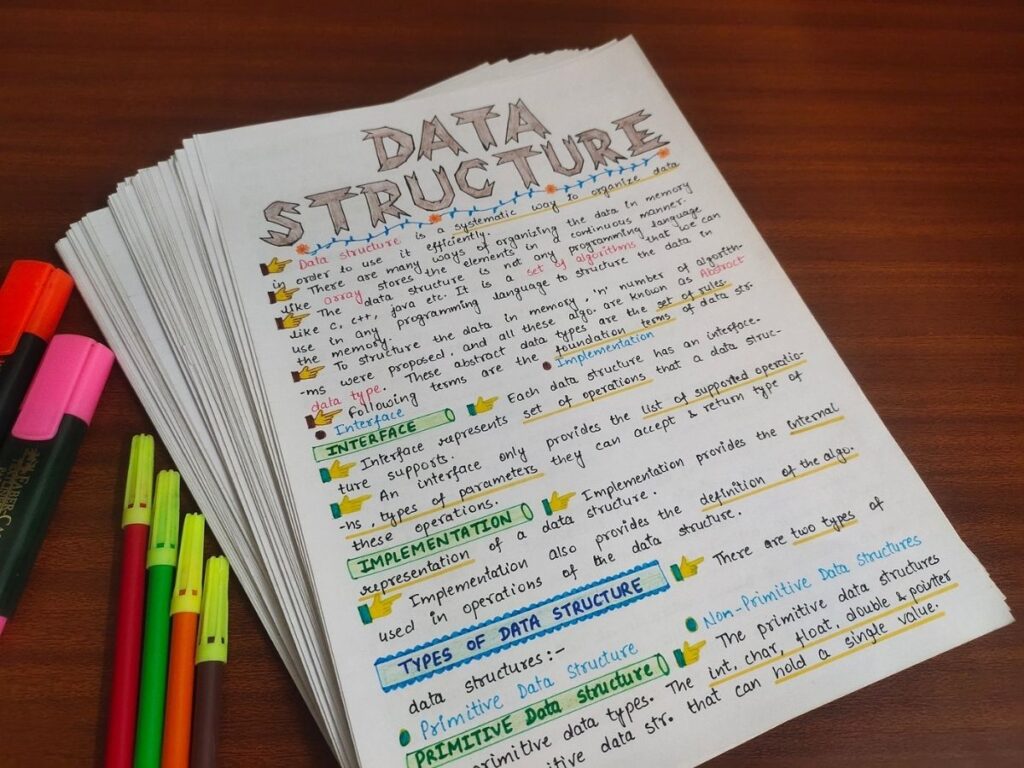 DATA
STRUCTURE
Data structure is a systematic way to organize data
in order to use it efficiently.
There are many ways of organizing the data in memory
like array stores the elements in a continuous manner.
The data structure is not any programming language
like C, C++, java etc. It is a set of algorithms that we can
use in any programming language to structure the data in
the memory.
To structure the data in memory, 'n' number of algorith-
-ms were proposed, and all these algo. are known as Abstract
data type. These abstract data types are the set of rules.
Following terms are the foundation terms of data str.
Interface Implementation
INTERFACE Each data structure has an interface.
Interface represents set of operations that a data struc-
ture supports.
An interface only provides the list of supported operatio-
-ns, types of parameters they can accept & return type of
these operations.
IMPLEMENTATION Implementation provides the internal
representation of a data structure.
Implementation also provides the definition of the algo.
used in operations of the data structure.
TYPES OF DATA STRUCTURE There are two types of
data structures:-
Primitive Data Structure Non-Primitive Data Structures
PRIMITIVE Data structure The primitive data structures
primitive data types. The int, char, float, double & pointer
data str. that can hold a single value.